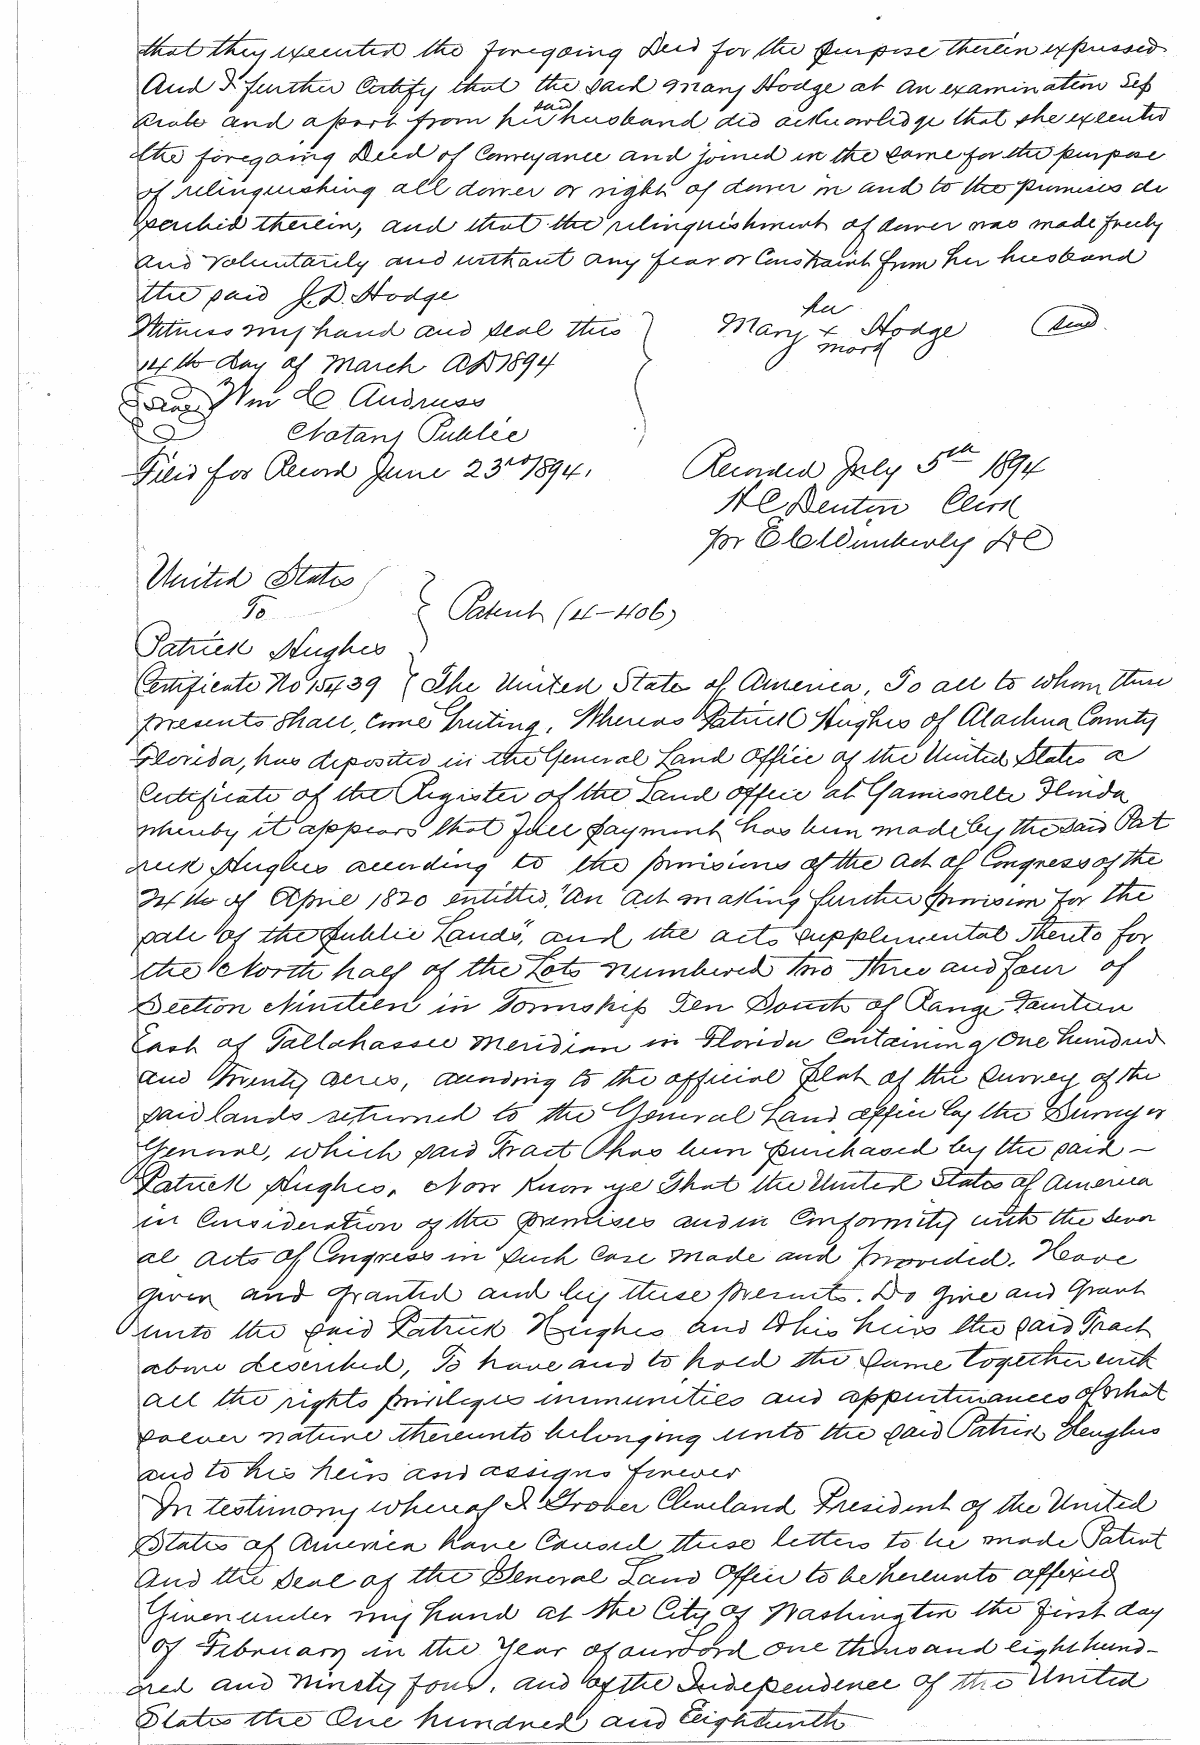 that they executed the foregoing Deed for the purpose therein expressed
And I further Certify that the said Mary Hodge at an examination Sep
arate and apart from her said husband did acknowledge that she executed
the foregoing Deed of Conveyance and joined in the same for the purpose
of relinquishing all dower or right of dower in and to the premises de
scribed therein, and that the relinquishment of dower was made freely
and voluntarily and without any fear or Constraint from her husband
the said J.D. Hodge
Witness my hand and seal this
14th day of March AD 1894
Seal Wm C Andruss
Notary Public
her
Mary x Hodge Seal
mark
Filed for Record June 23rd 1894.
Recorded July 5th 1894
H C Denton Clerk
pr E C Wimberly DC
United States
To
Patrick Hughes
Patent (4-406)
Certificate No 15439 The United States of America, To all to whom these
presents shall, come Greeting, Whereas Patrick Hughes of Alachua County
Florida, has deposited in the General Land Office of the United States a
Certificate of the Register of the Land office at Gainesville Florida
whereby it appears that full payment has been made by the said Pat
rick Hughes according to the provisions of the act of Congress of the
24th of April 1820 entitled, "An Act making further provision for the
sale of the public Lands", and the acts supplemental thereto for
the North half of the Lots numbered two three and four of
Section Nineteen in Township Ten South of Range Fourteen
East of Tallahassee Meridian in Florida Containing One hundred
and twenty acres, according to the official plat of the survey of the
said lands returned to the General Land office by the Surveyor
General, which said Tract has been purchased by the said -
Patrick Hughes. Now Know ye That the United States of America
in Consideration of the premises and in Conformity with the sever
al acts of Congress in such case made and provided. Have
given and granted and by these presents. Do give and grant
unto the said Patrick Hughes and to his heirs the said Tract
above described, To have and to hold the same together with
all the rights privileges immunities and appurtenances of what
soever nature thereunto belonging unto the said Patrick Hughes
and to his heirs and assigns forever
In testimony whereof I Grover Cleveland President of the United
States of America have Caused these letters to be made Patent
and the seal of the General Land Office to be hereunto affixed
Given under my hand at the City of Washington the first day
of February in the Year of our Lord one thousand eight hund-
red and Ninety four. and of the Independence of the United
States the One hundred and Eighteenth